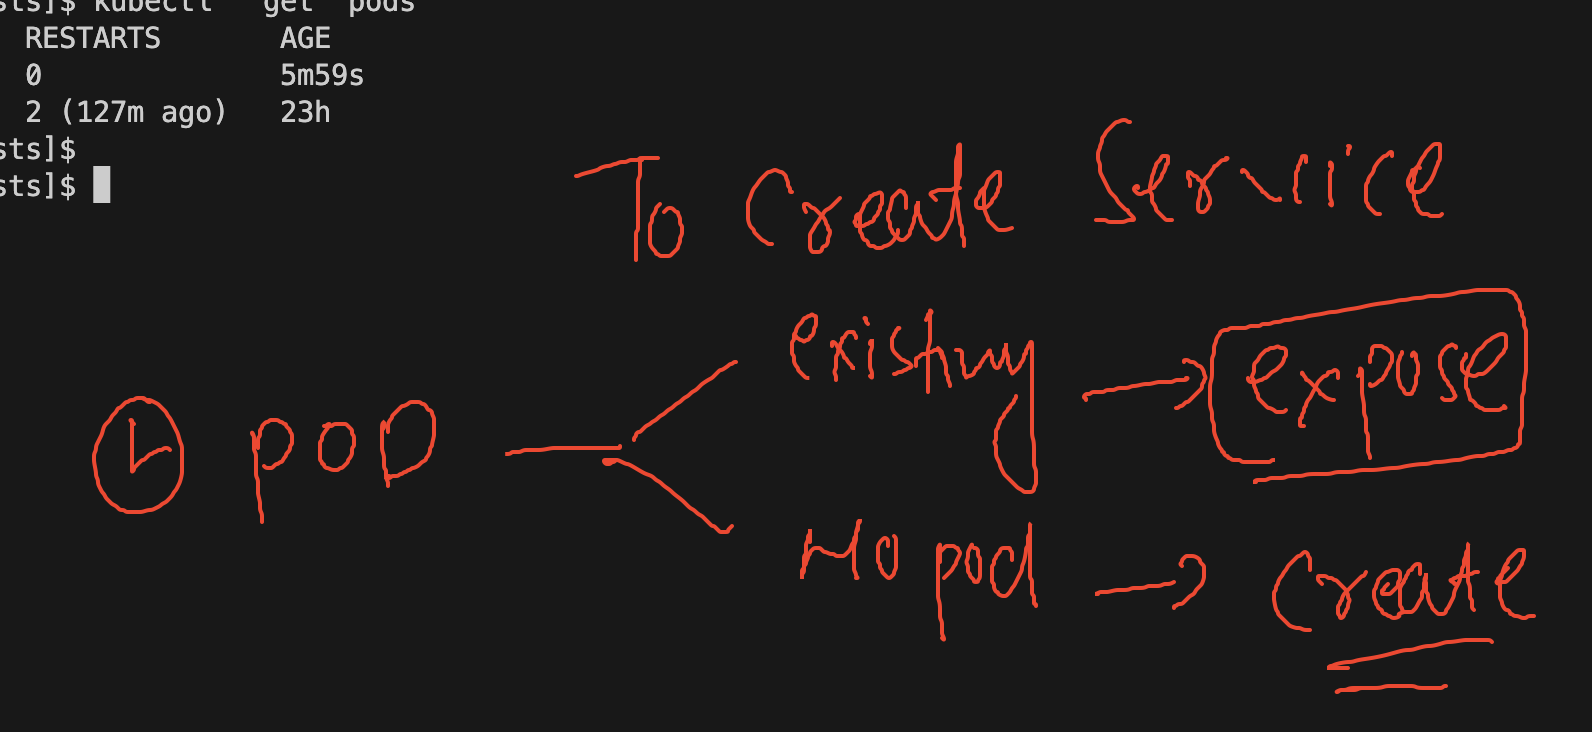 sts]$ kubectl get pods
RESTARTS AGE
0 5m59s
2 (127m ago) 23h
sts]$
sts]$
To Create Service
existing → expose
1 POD
No pod → Create